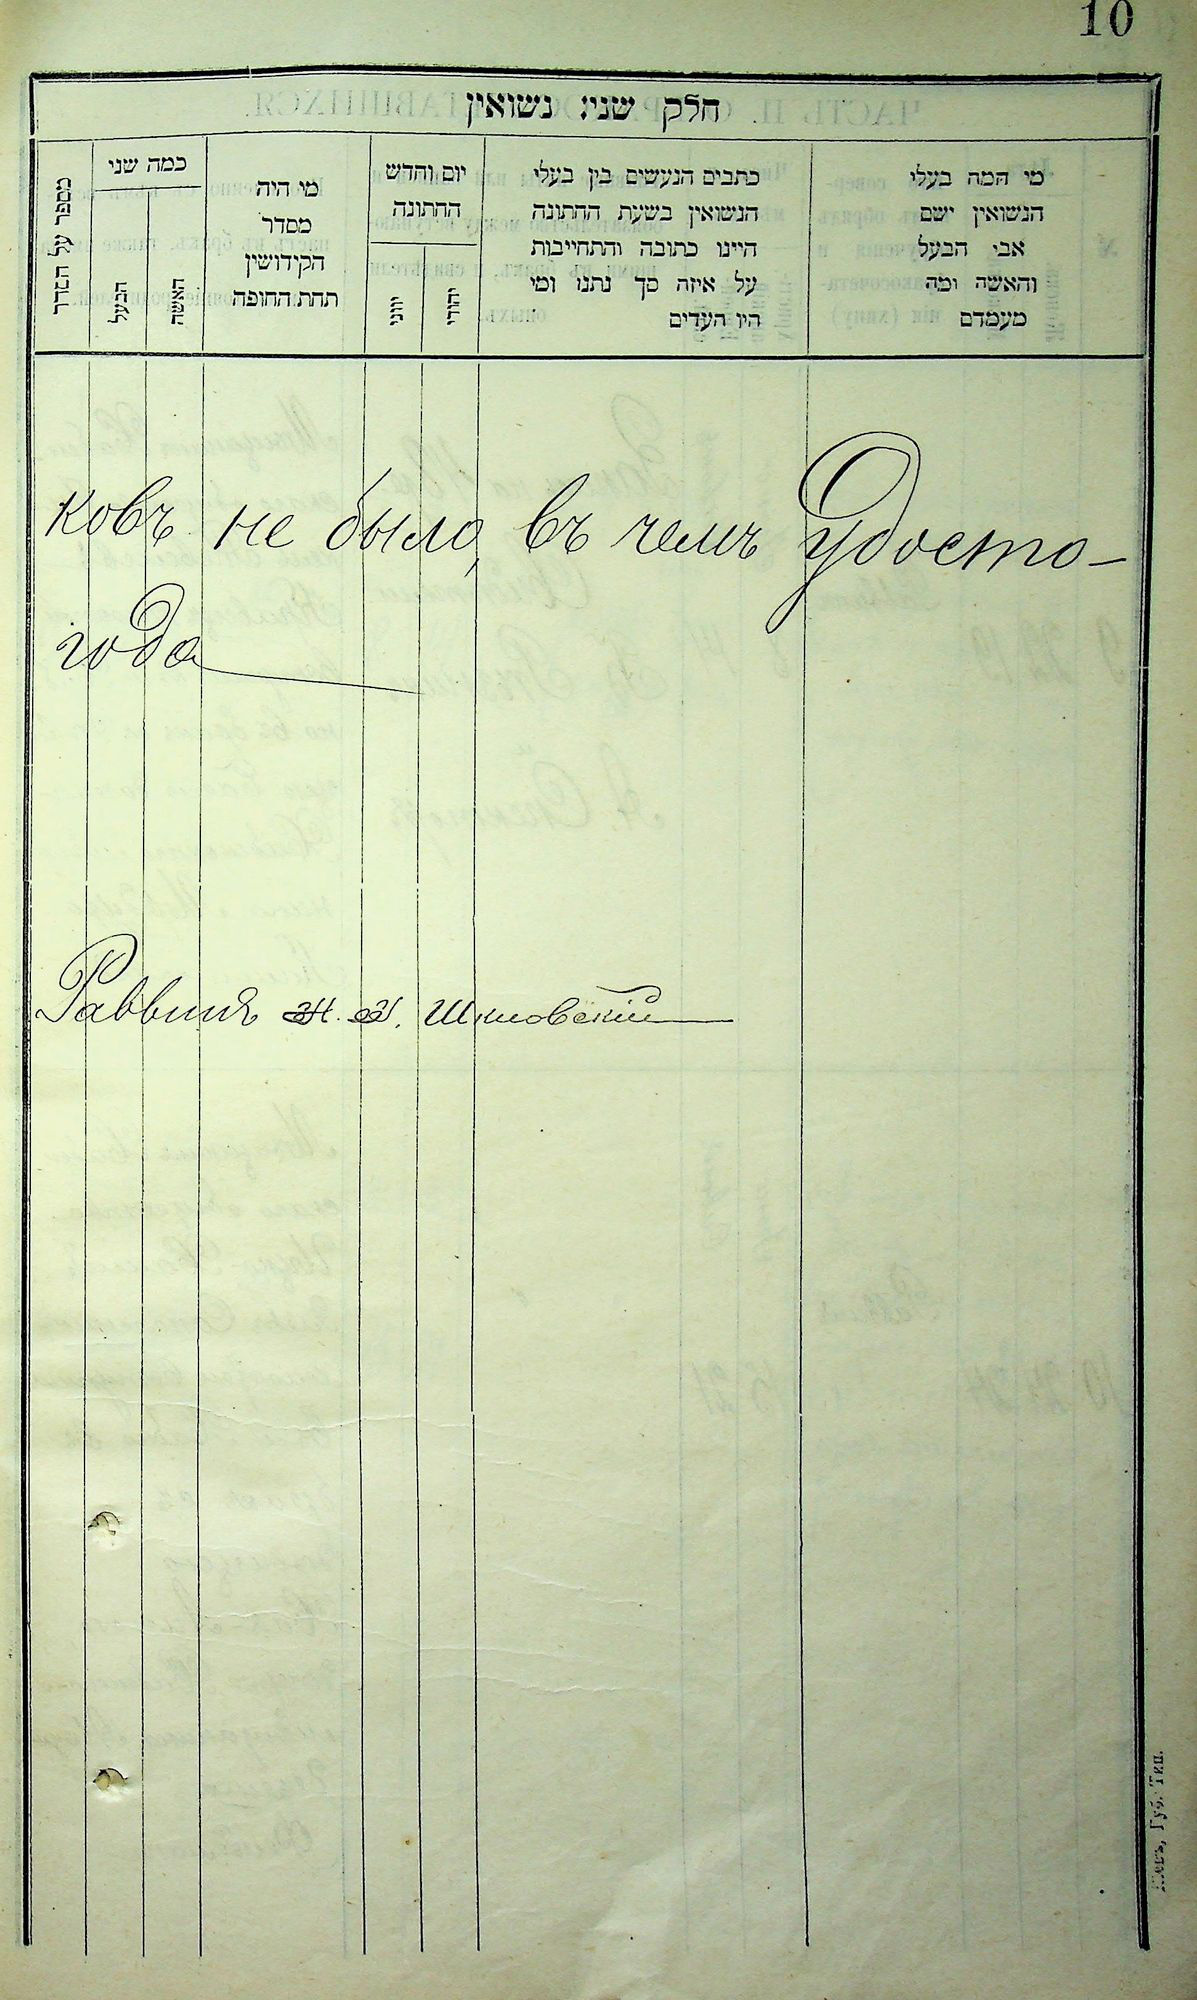 10
חלק שני׃ נשואין
מספר על הסדר
כמה שני
הבעל
האשה
מי היה
מסדר
הקידושין
תחת החופה
יום וחדש
החתונה
יווני
יהודי
כתבים הנעשים בין בעלי
הנשואין בשעת החתונה
היינו כתובה והתחייבות
על איזה סך נתנו ומי
היו העדים
מי המה בעלי
הנשואין ושם
אבי הבעל
והאשה ומה
מעמדם
ковъ не было, въ чемъ удосто-
года
Раввинъ Шкловскій
Губ. Тип.